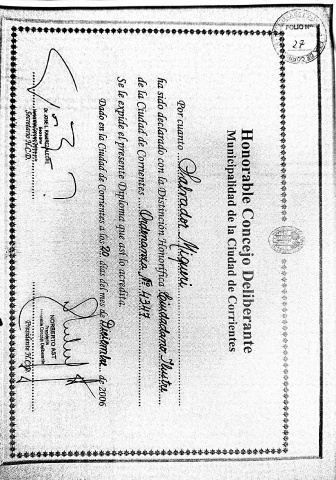 FOLIO Nº
27
Honorable Concejo Deliberante
Municipalidad de la Ciudad de Corrientes
Por cuanto Salvador Miqueri
ha sido declarado con la Distinción Honorífica Ciudadano Ilustre
de la Ciudad de Corrientes Ordenanza Nº 4347
Se le expide el presente Diploma que así lo acredita.
Dado en la Ciudad de Corrientes a los 20 días del mes de Diciembre de 2006
Secretario H.C.D.
NORBERTO AST
Presidente
Presidente H.C.D.